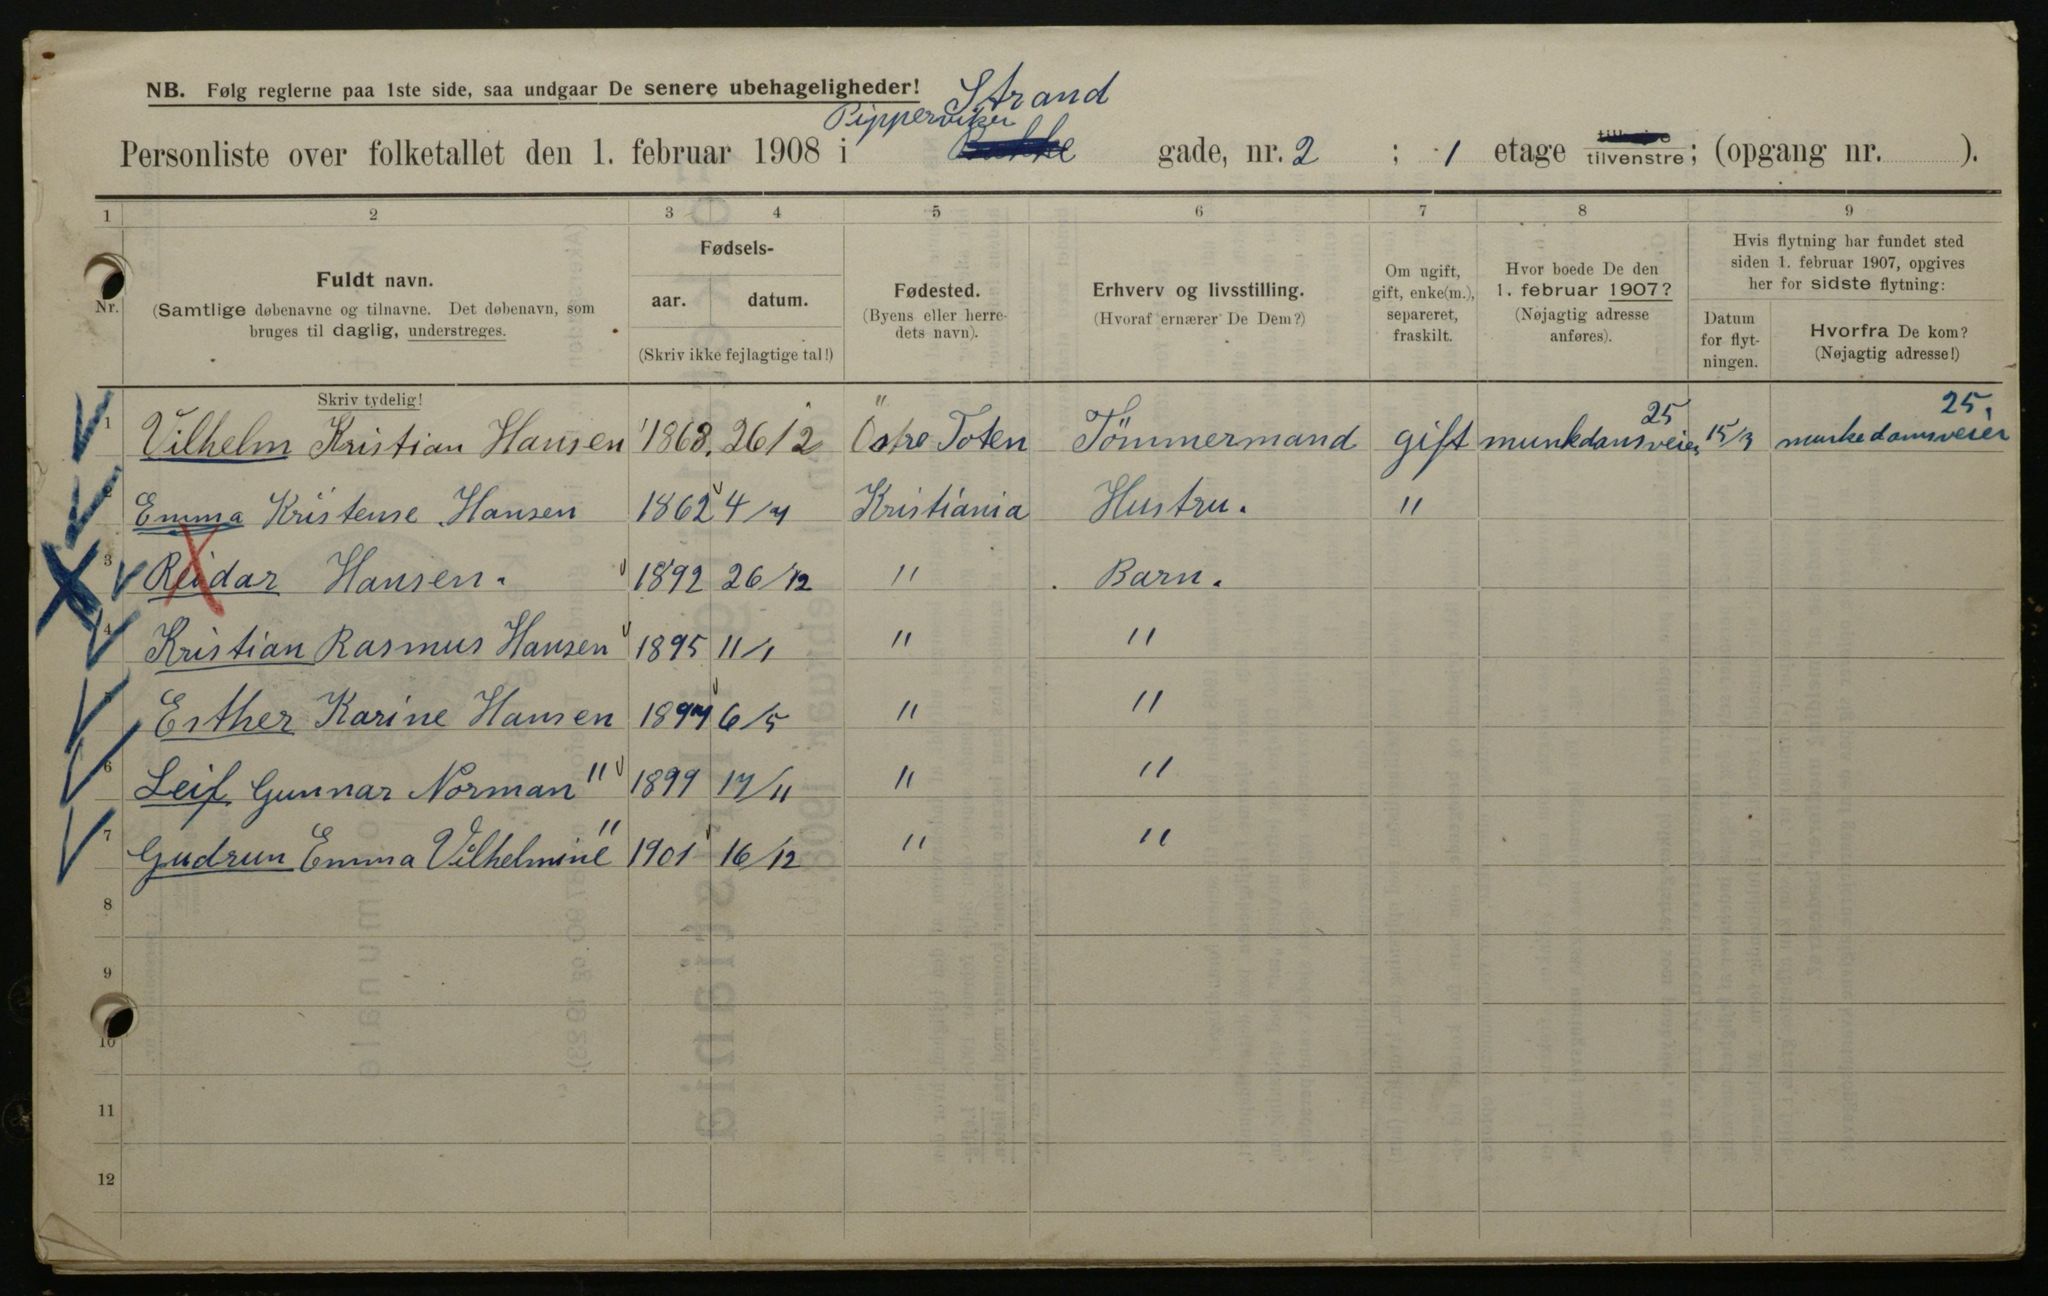 NB. Følg reglerne paa 1ste side, saa undgaar De senere ubehageligheder!
Strand
Pipperviken
Personliste over folketallet den 1. februar 1908 i gade, nr. 2 ; 1 etage tilvenstre; (opgang nr. ).
1 2 3 4 5 6 7 8 9
Nr.
Fuldt navn.
(Samtlige døbenavne og tilnavne. Det døbenavn, som
bruges til daglig, understreges.
Skriv tydelig!
Fødsels-
aar. datum.
(Skriv ikke fejlagtige tal!)
Fødested.
(Byens eller herre-
dets navn).
Erhverv og livsstilling.
(Hvoraf ernærer De Dem?)
Om ugift,
gift, enke(m.),
separeret,
fraskilt.
Hvor boede De den
1. februar 1907?
(Nøjagtig adresse
anføres).
Hvis flytning har fundet sted
siden 1. februar 1907, opgives
her for sidste flytning:
Datum
for flyt-
ningen.
Hvorfra De kom?
(Nøjagtig adresse!)
1 Vilhelm Kristian Hansen 1868. 26/2 Östre Toten Tömmermand gift munkdansveien 25 15/3 munkedamsveien 25,
Emma Kristense Hansen 1862 4/7 Kristiania Hustru. "
3 Reidar Hansen. 1892 26/12 " Barn.
4 Kristian Rasmus Hansen 1895 11/1 " "
Esther Karine Hansen 1897 6/5 " "
6 Leif Gunnar Norman " 1899 17/11 " "
7 Gudrun Emma Vilhelmine " 1901 16/12 " "
8
9
10
11
12